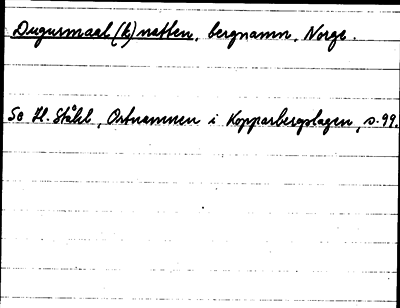 Dugurmaal(k)natten, bergnamn, Norge.
Se H. Ståhl, Ortnamnen i Kopparbergslagen, s. 99.